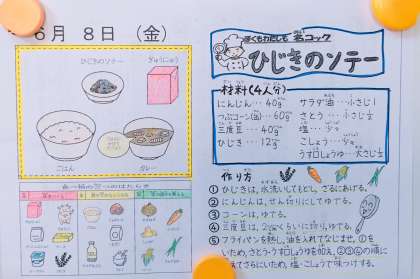 6月 8日 (金)
ひじきのソテー
ぎゅうにゅう
ごはん
カレー
ぼくもわたしも 名コック
ひじきのソテー
材料(4人分)
にんじん… 40g
つぶコーン(缶)… 60g
三度豆… 40g
ひじき… 12g
サラダ油…小さじ1
さとう…小さじ½
塩…少々
こしょう…少々
うす口しょうゆ…大さじ½
作り方
① ひじきは、水洗いしてもどし、ざるにあげる。
② にんじんは、せん切りにしてゆでる。
③ コーンは、ゆでる。
④ 三度豆は、2cmくらいに切り、ゆでる。
⑤ フライパンを熱し、油を入れてなじませ、①を
いため、さとう、うす口しょうゆを加え、②③④の順に
てさらにいため、塩・こしょうで味つけする。